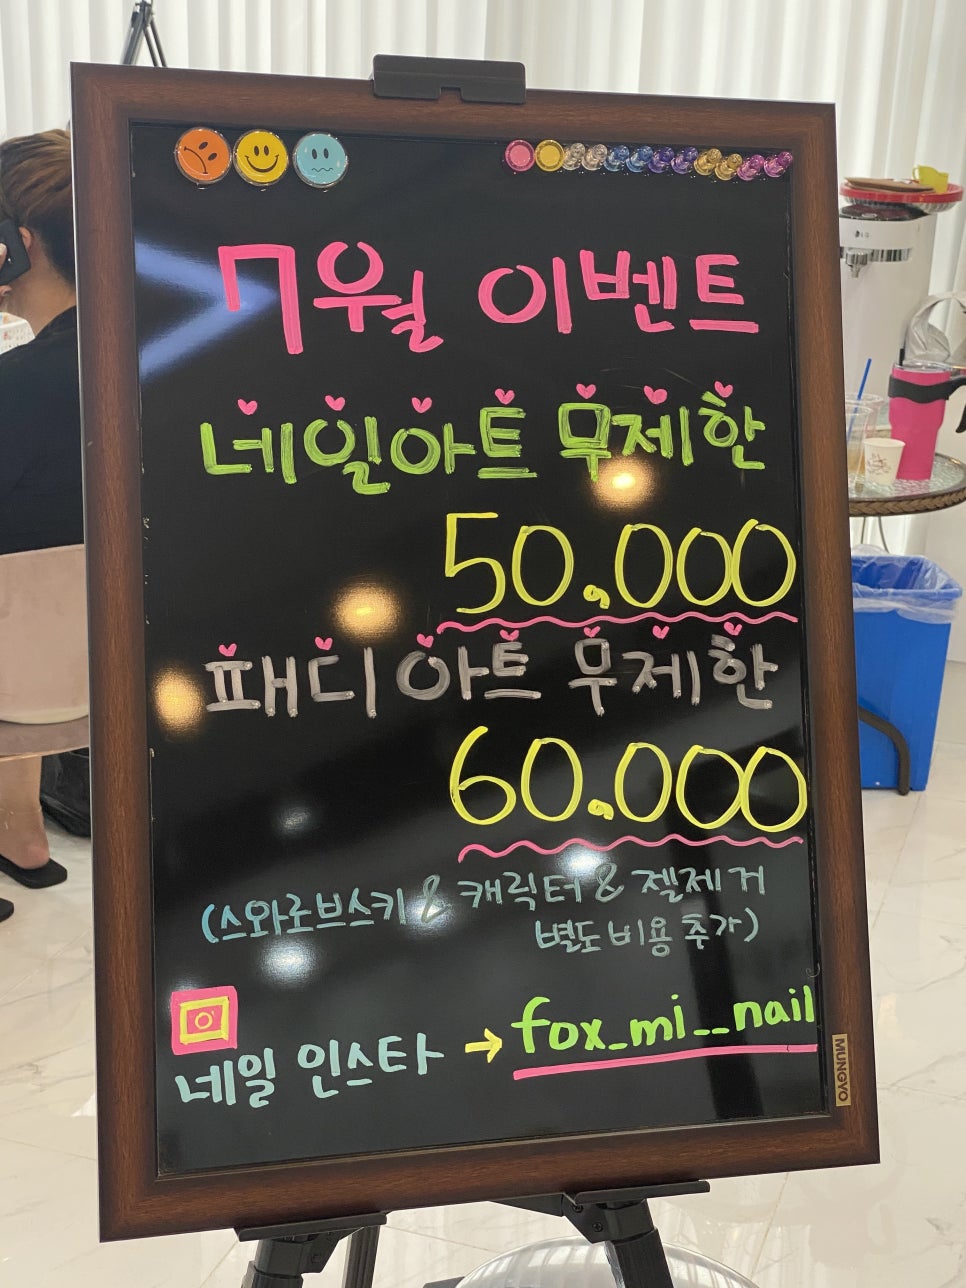 7월 이벤트
네일아트 무제한
50.000
패디아트 무제한
60.000
(스와로브스키 & 캐릭터 & 젤제거
별도 비용 추가)
네일 인스타 → fox_mi__nail
MUNGYO
LG